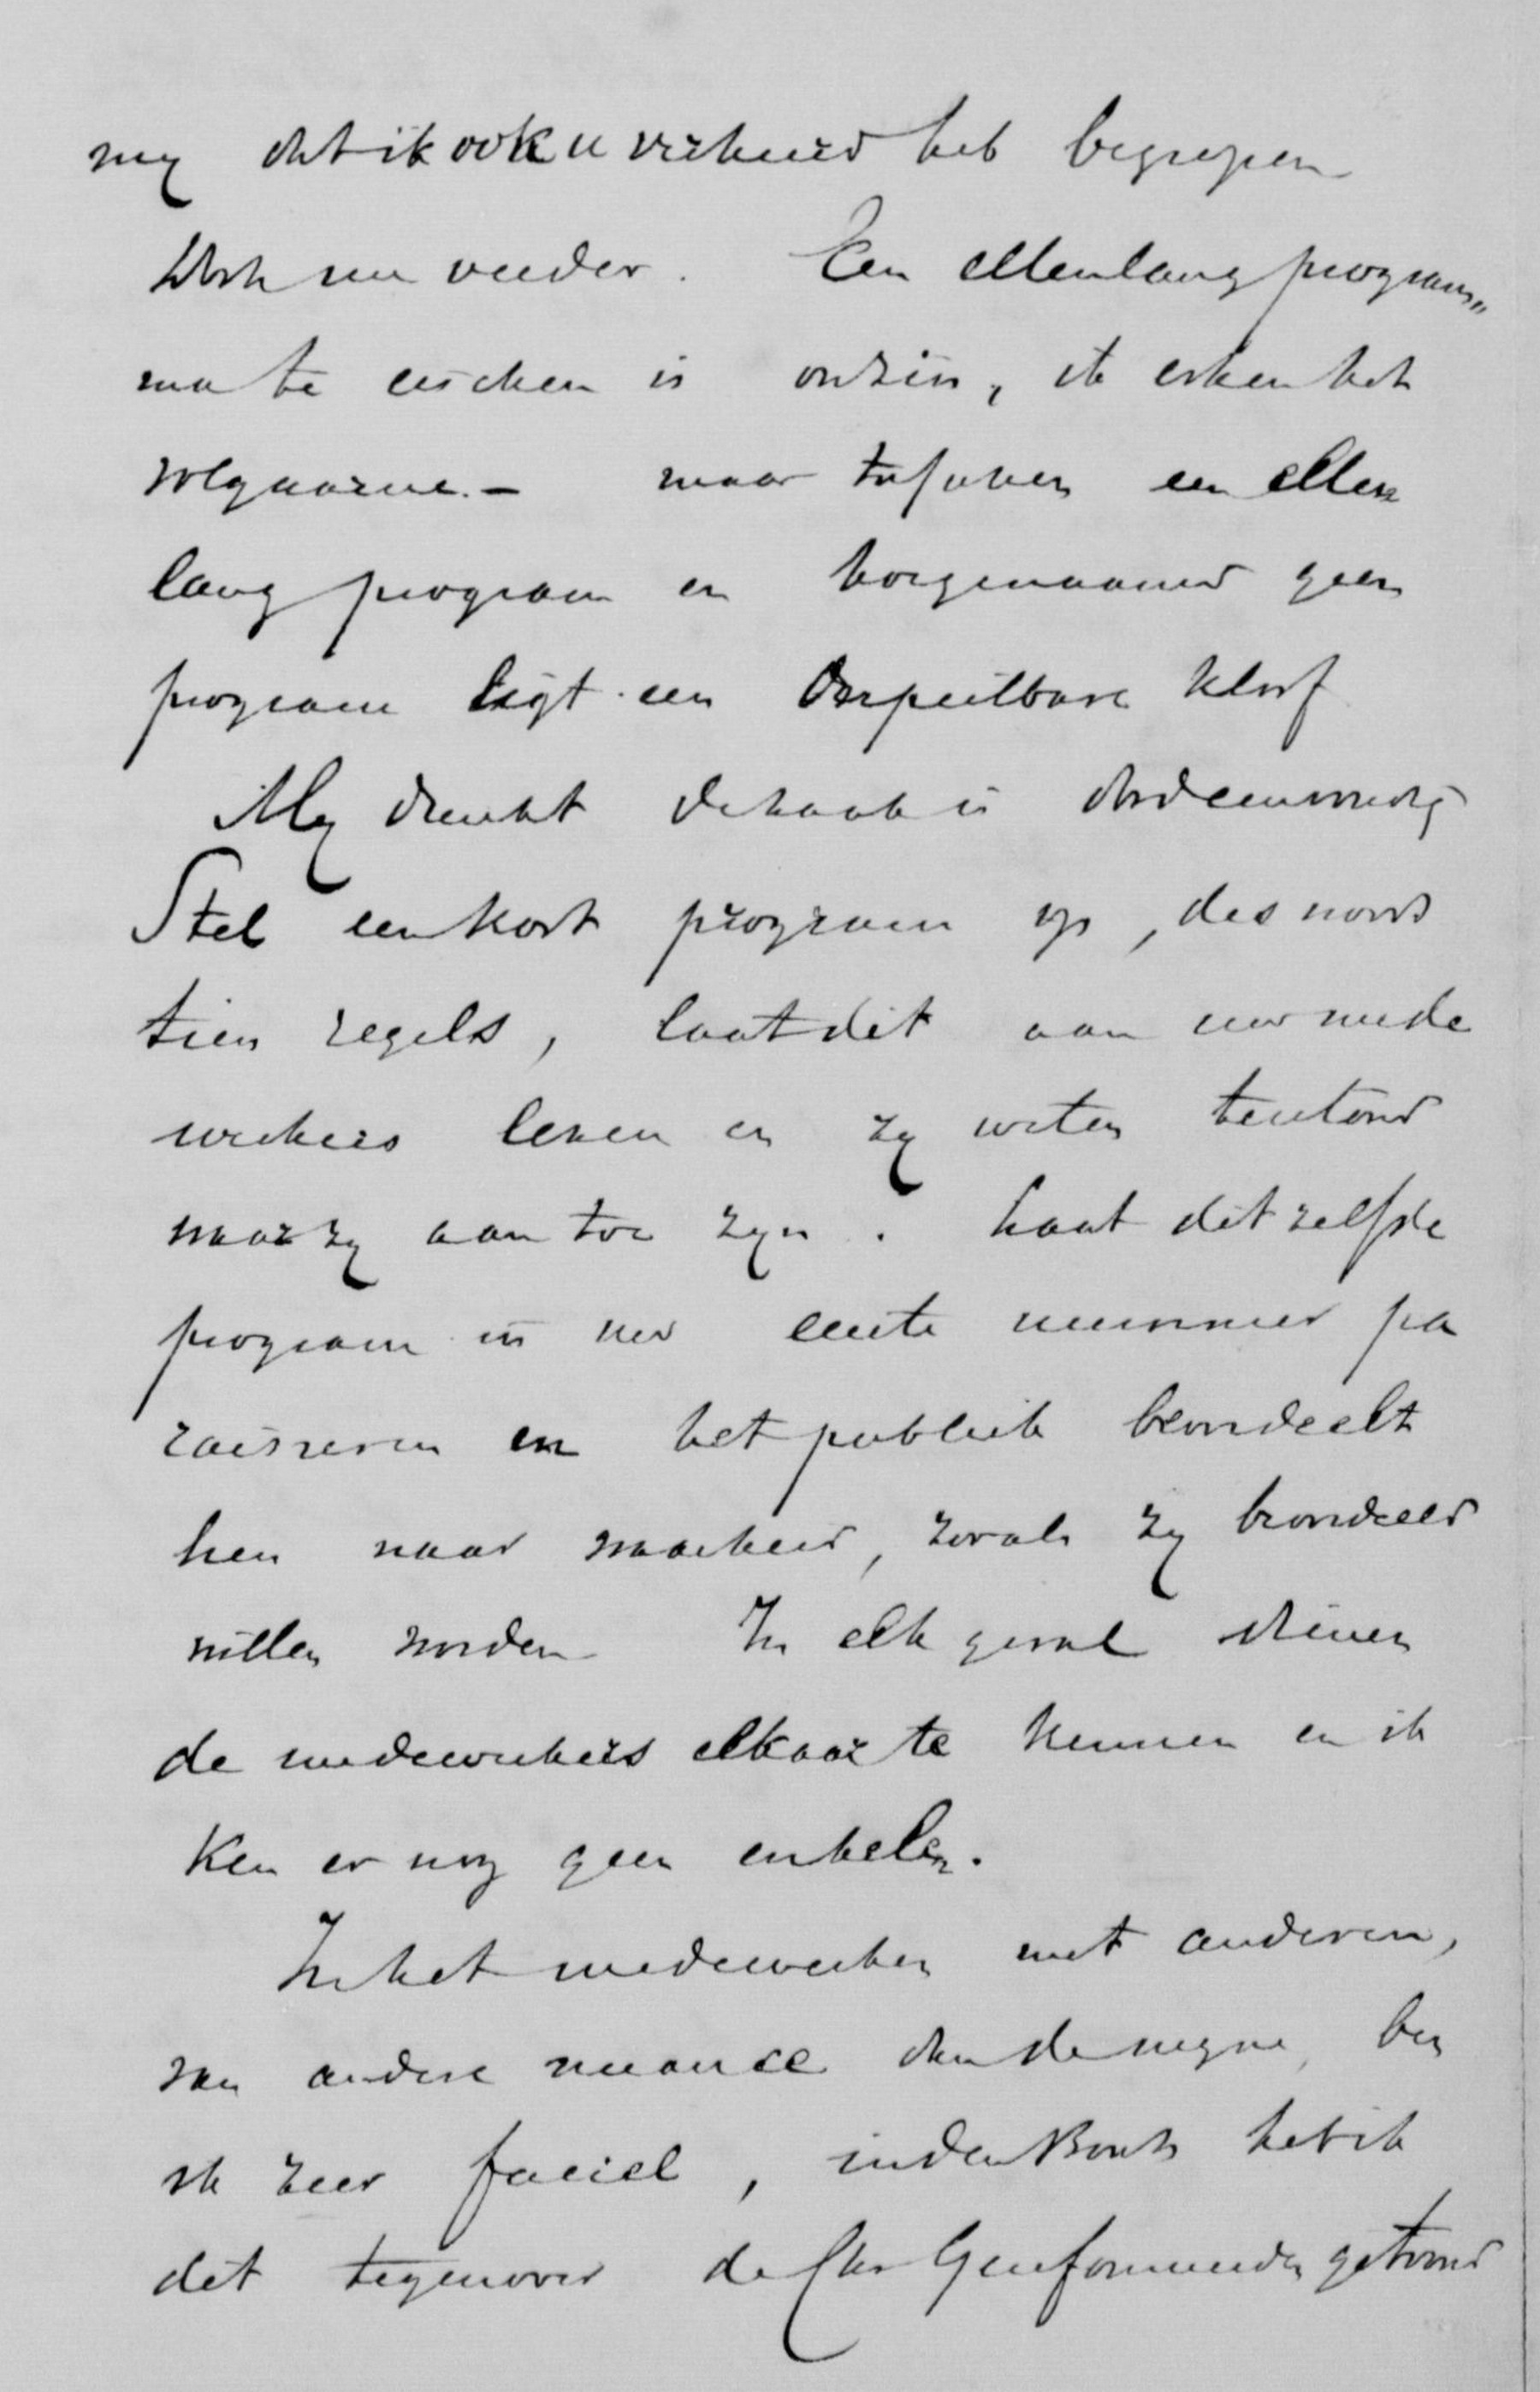 my dat ik ook u verkeerd heb begrepen
Doch nu verder. Een ellenlang program„
ma te eischen is onzin, ik erken het
volgaarne. — maar tusschen een ellen
lang program en hoegenaamd geen
program ligt een onpeilbare kloof
My dunkt de zaak is doodeenvoudig
Stel een kort program op, des noods
tien regels, laat dit aan uw mede
werkers lezen en zy weten terstond
waar zy aan toe zyn. Laat ditzelfde
program in uw eerste nummer pa
raisseren en het publiek beoordeelt
hen naar waarheid, zooals zy beoordeeld
willen worden In elk geval dienen
de medewerkers elkaar te kennen en ik
ken er nog geen enkelen.
In het medewerken met anderen,
van andere nuance dan de myne, ben
ik zeer faciel, in den Bond heb ik
dit tegenover de Chr Gereformeerden getoond